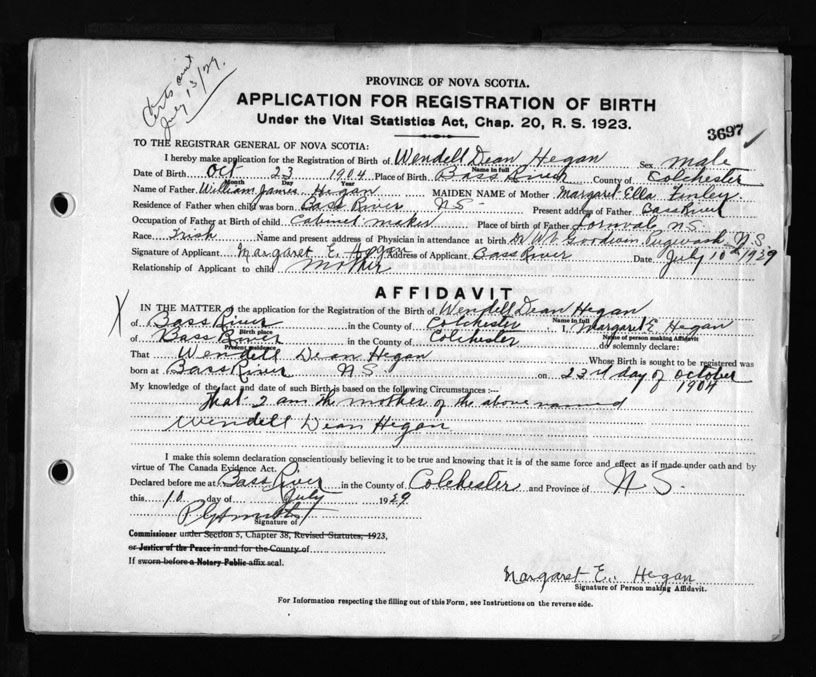 July 13/29.
PROVINCE OF NOVA SCOTIA.
APPLICATION FOR REGISTRATION OF BIRTH
Under the Vital Statistics Act, Chap. 20, R. S. 1923.
3697
TO THE REGISTRAR GENERAL OF NOVA SCOTIA:
I hereby make application for the Registration of Birth of Wendell Dean Hegan Sex male
Name in full
Date of Birth Oct 23 1904 Place of Birth Bass River County of Colchester
Month Day Year
Name of Father William James Hegan MAIDEN NAME of Mother Margaret Ella Finley
Residence of Father when child was born Bass River N S. Present address of Father Bass River
Occupation of Father at Birth of child Cabinet maker Place of birth of Father N.S.
Race Irish Name and present address of Physician in attendance at birth Dr Goodwin Pugwash N.S.
Signature of Applicant Margaret E. Hegan Address of Applicant Bass River Date July 10th 1929
Relationship of Applicant to child Mother
AFFIDAVIT
X
IN THE MATTER of the application for the Registration of the Birth of Wendell Dean Hegan
Name in full
of Bass River in the County of Colchester I, Margaret E Hegan
Birth place Name of person making Affidavit
of Bass River in the County of Colchester do solemnly declare:
Present residence
That Wendell Dean Hegan Whose Birth is sought to be registered was
born at Bass River N S. on 23rd day of October
1904
My knowledge of the fact and date of such Birth is based on the following Circumstances:—
That I am the mother of the above named
Wendell Dean Hegan
I make this solemn declaration conscientiously believing it to be true and knowing that it is of the same force and effect as if made under oath and by
virtue of The Canada Evidence Act.
Declared before me at Bass River in the County of Colchester and Province of N S.
this 10 day of July 1929
Signature of
Commissioner under Section 5, Chapter 38, Revised Statutes, 1923,
or Justice of the Peace in and for the County of
If sworn before a Notary Public affix seal.
Margaret E. Hegan
Signature of Person making Affidavit.
For Information respecting the filling out of this Form, see Instructions on the reverse side.